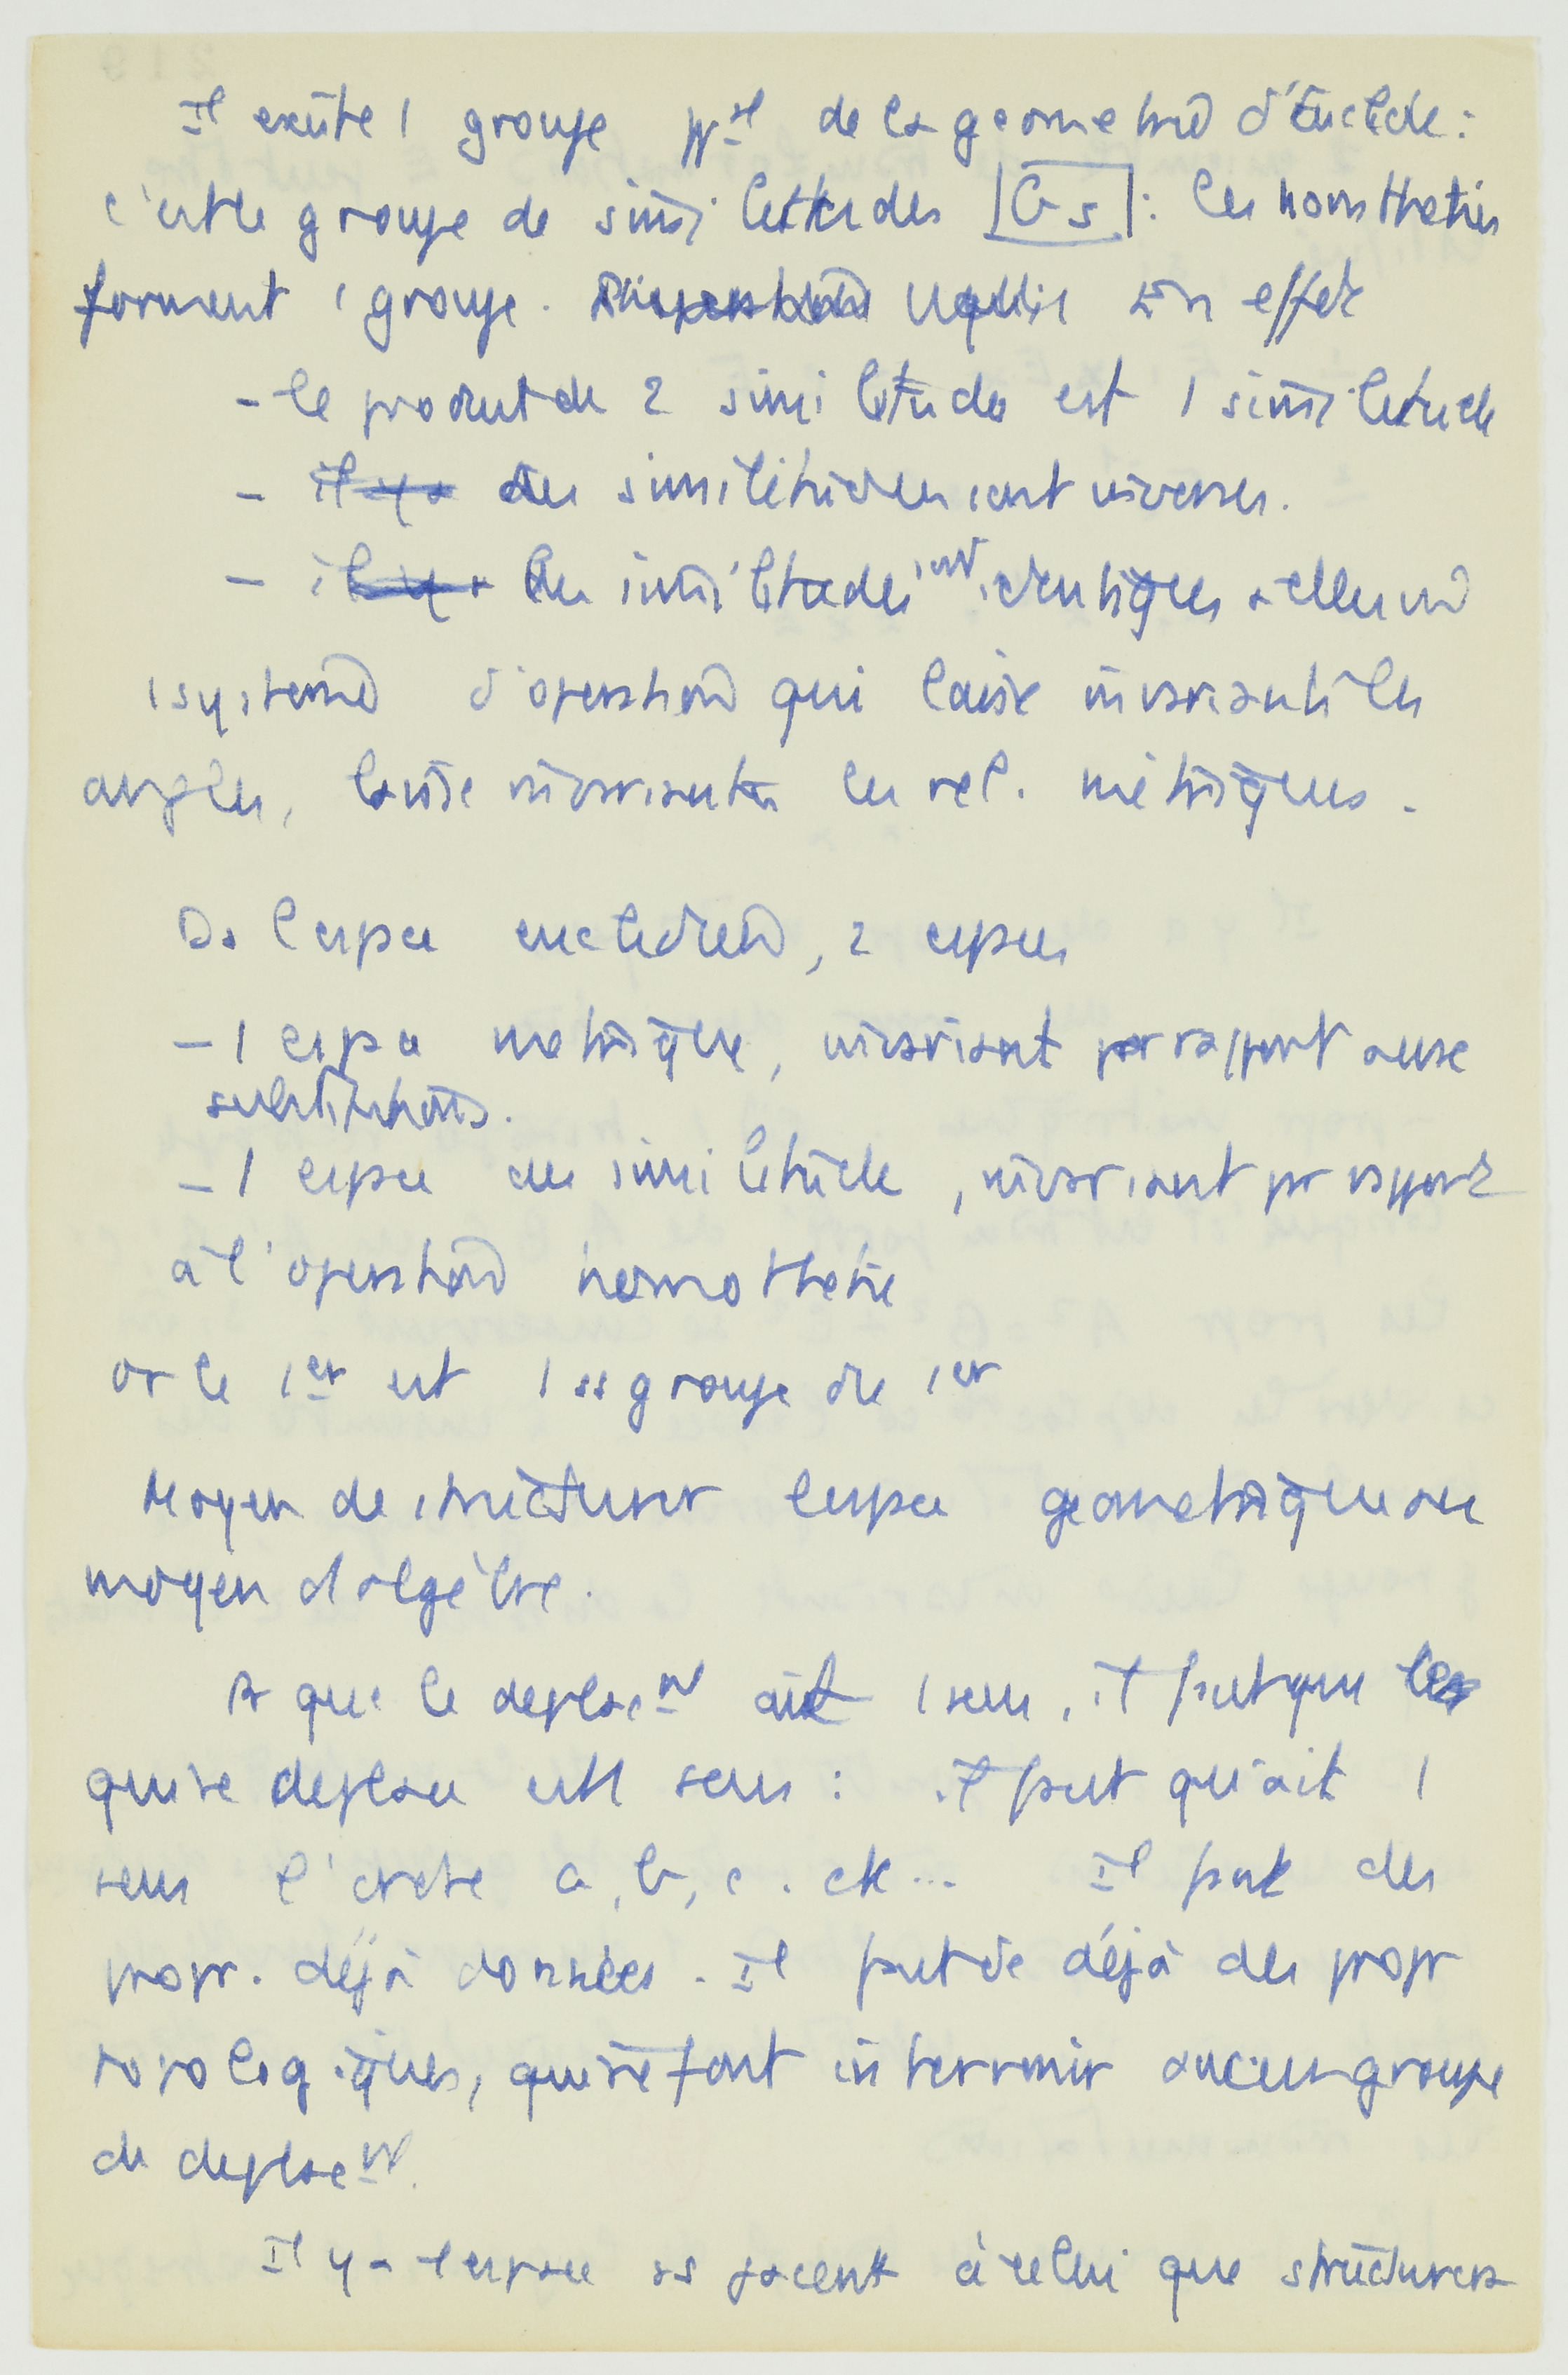 Il existe 1 groupe ppal de la geometrie d'Euclide :
c'est le groupe de similitudes |Gs| : les homotheties
forment 1 groupe. En effet
- le produit de 2 similitudes est 1 similitude
- il y a des similitudes sont inverses.
- il y a les similitudes sont identiques a elles mê
1 système d'operation qui laisse invariant les
angles, laisse invariantes les rel. métriques.
Ds l'espace euclidien, 2 espaces
- 1 espace metrique, invariant par rapport aux
substitutions.
- 1 espace de similitude, invariant par rapport
à l'operation homothetie
or le 1er est 1 ss groupe du 1er
Moyen de structurer l'espace geometrique au
moyen d'algèbre.
Pr que le deplact ait 1 sens, il faut que les
qui se deplace ait 1 sens : il faut qu'ait 1
sens l'arete a, b, c. etc... Il faut des
propr. déjà données. Il faut de déjà des propr
topologiques, qui ne font intervenir aucun groupe
de deplact.
Il y a 1 espace ss jacent à celui que structurera